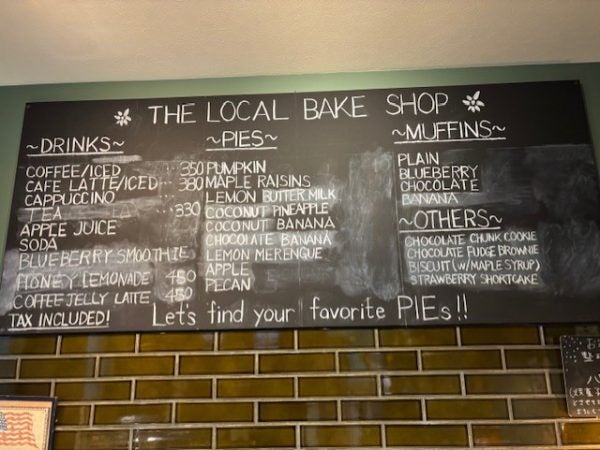 THE LOCAL BAKE SHOP
~DRINKS~
COFFEE/ICED ... 350
CAFE LATTE/ICED ... 380
CAPPUCCINO
TEA ... 330
APPLE JUICE
SODA
BLUEBERRY SMOOTHIE
HONEY LEMONADE 450
COFFEE JELLY LATTE 450
TAX INCLUDED!
~PIES~
PUMPKIN
MAPLE RAISINS
LEMON BUTTER MILK
COCONUT PINEAPPLE
COCONUT BANANA
CHOCOLATE BANANA
LEMON MERENGUE
APPLE
PECAN
~MUFFINS~
PLAIN
BLUEBERRY
CHOCOLATE
BANANA
~OTHERS~
CHOCOLATE CHUNK COOKIE
CHOCOLATE FUDGE BROWNIE
BISCUIT (W/MAPLE SYRUP)
STRAWBERRY SHORTCAKE
Lets find your favorite PIEs!!